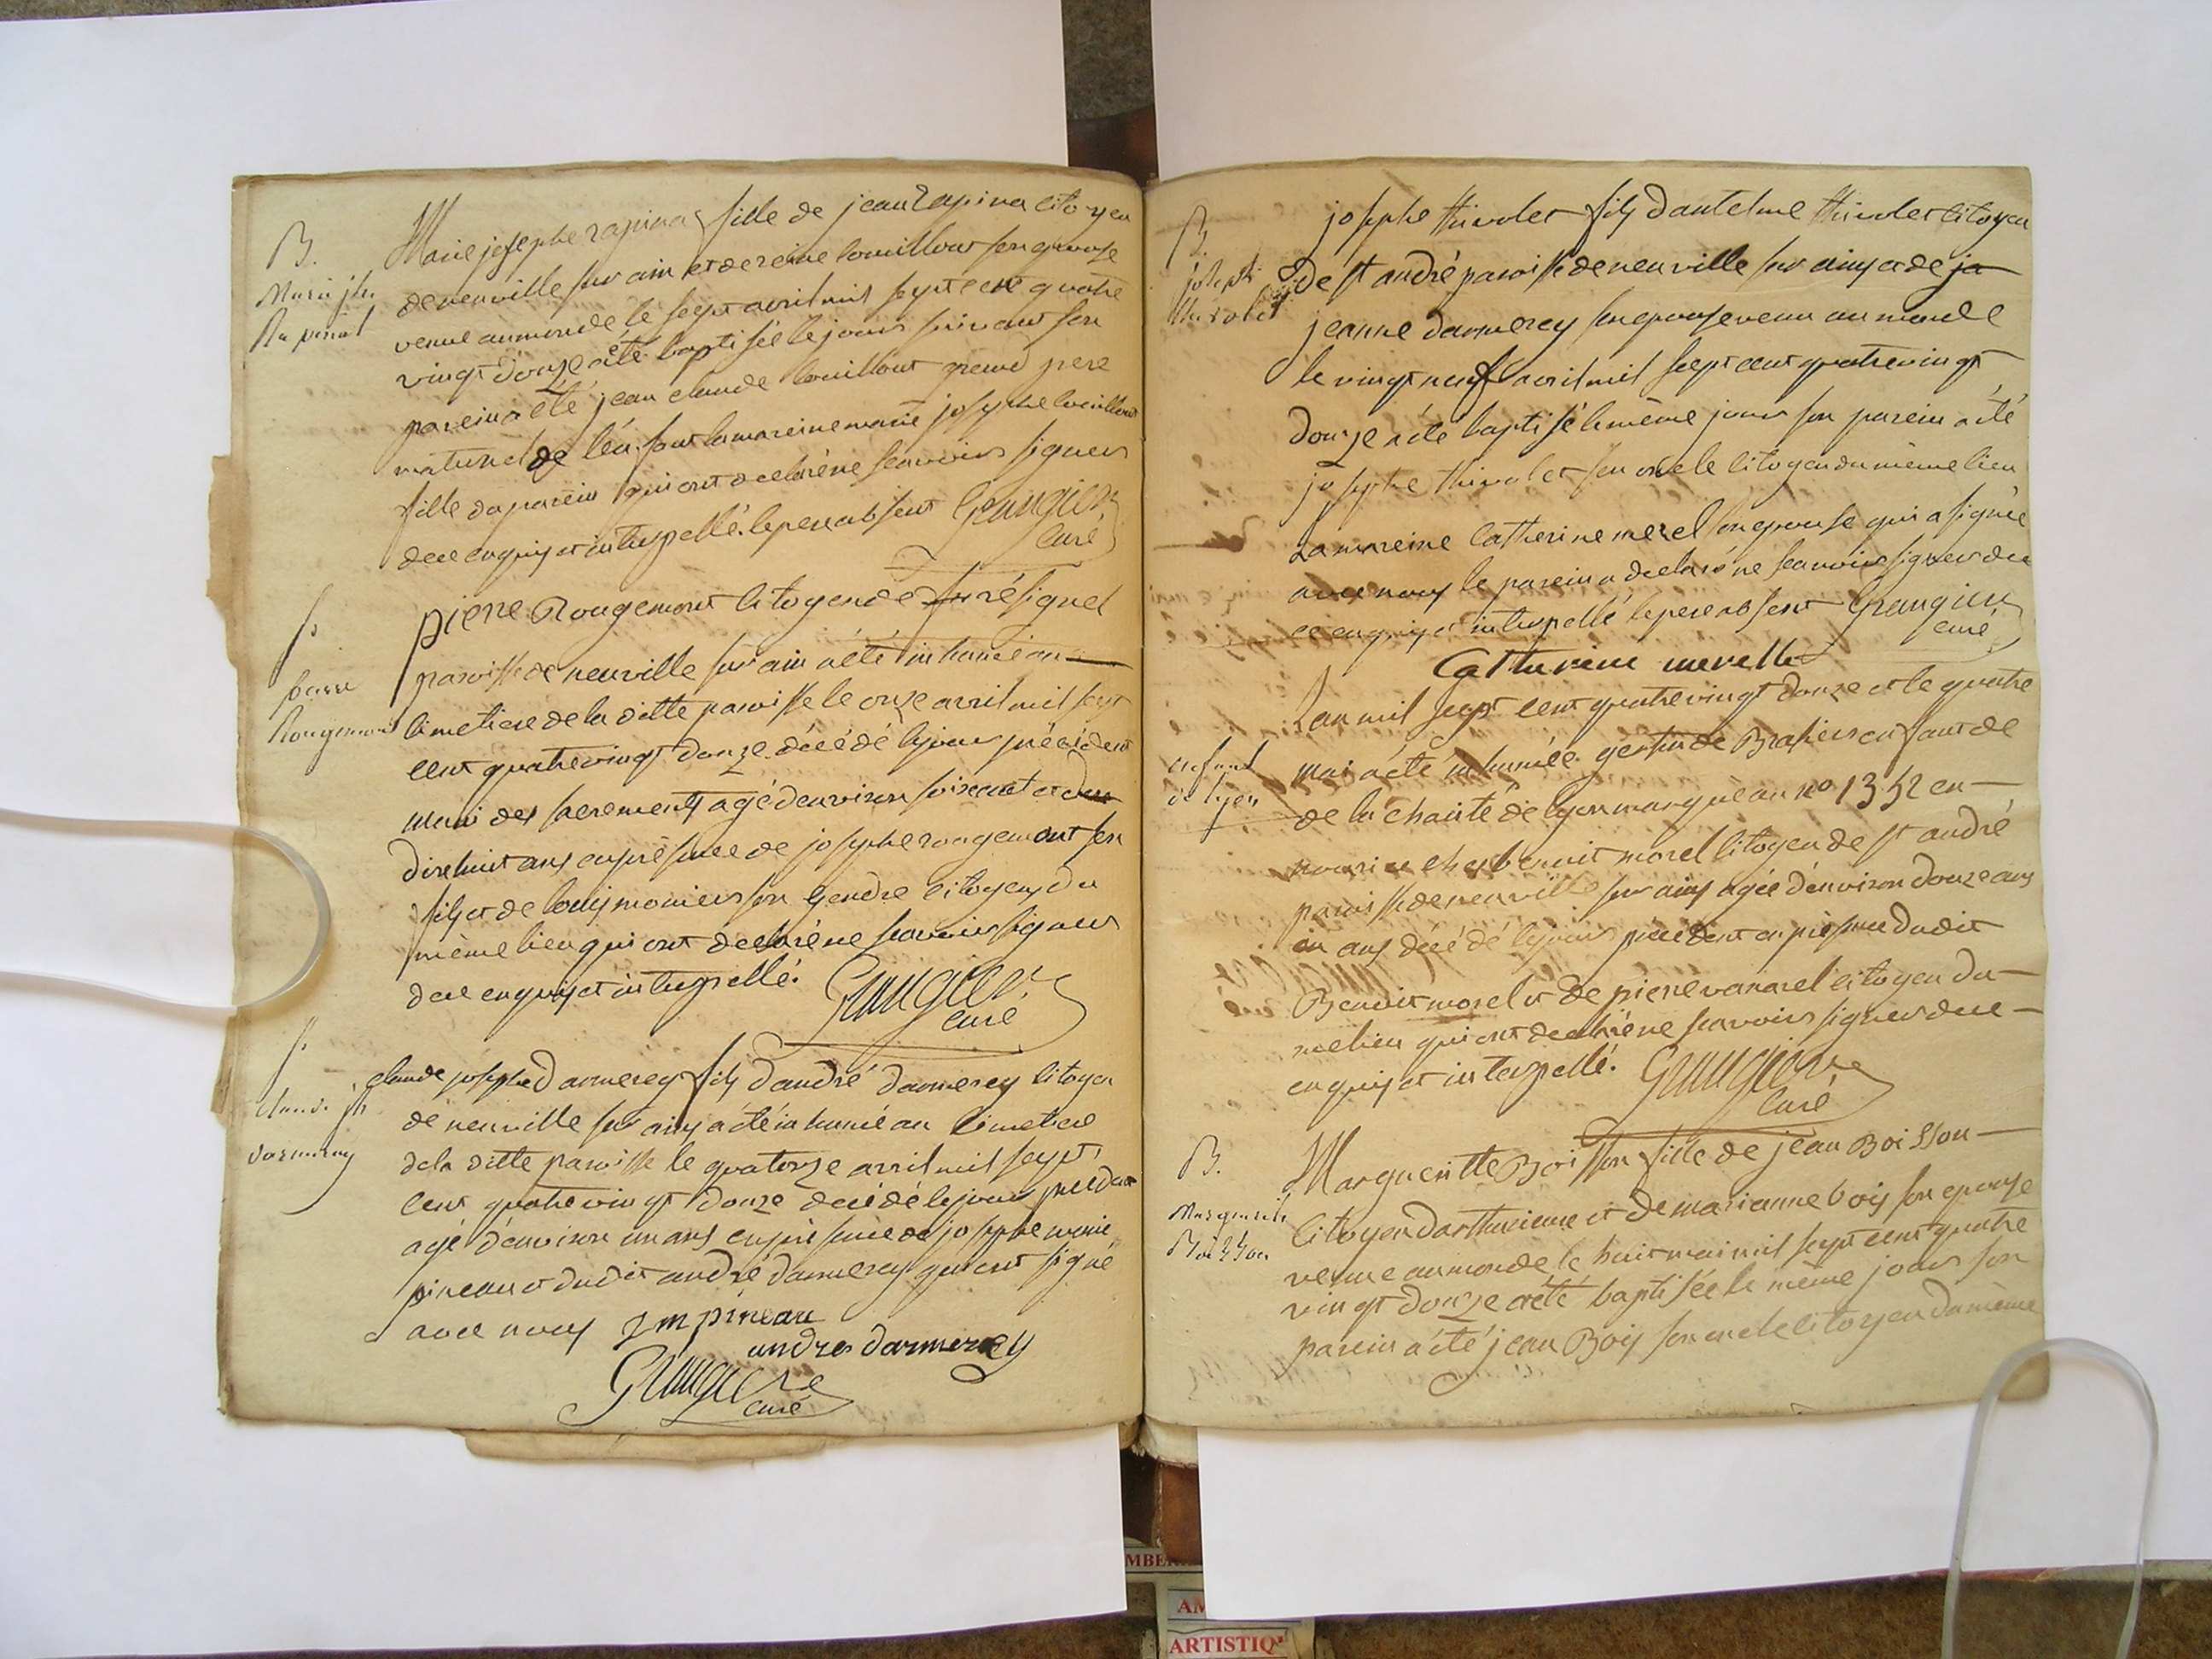 B.
Marie jh.
Rapinat
Marie josephe rapina fille de jean Rapina citoyen
de neuville sur ain et de reine louillout son epouse
venue au monde le sept avril mil sept cent quatre
vingt douze a été baptisée le jour suivant son
parein a été jean claude louillout grand pere
maternel de l'enfant la mareine marie josephe louillout
fille du parein qui ont declaré ne scavoir signer
de ce enquis et interpellé. le pere absent Grangier
curé
f.
pierre
Rougemont
pierre Rougemont citoyen de fu résignel
paroisse de neuville sur ain a été inhumé au
cimetiere de la ditte paroisse le onze avril mil sept
cent quatre vingt douze décédé le jour précédent
muni des sacrements agé d'environ soixante et
dix huit ans en présence de josephe rougemont son
fils et de louis monier son gendre citoyens du
même lieu qui ont declaré ne scavoir signer
de ce enquis et interpellé. Grangier
curé
f.
claude jh
darmerey
claude josephe Darmerey fils d'andré darmerey citoyen
de neuville sur ain a été inhumé au cimetiere
de la ditte paroisse le quatorze avril mil sept
cent quatre vingt douze decédé le jour precedent
agé d'environ un ans en présence de josephe marie
pineau et dudit andré darmerey qui ont signé
avec nous J m pineau
andre darmerey
Grangier
curé
B.
joseph
thivolet
josephe thivolet fils d'antelme thivolet citoyen
de st andré paroisse de neuville sur ain et de ja
jeanne darmerey son epouse venu au monde
le vingt neuf avril mil sept cent quatre vingt
douze a été baptisé le même jour son parein a été
josephe thivolet son oncle citoyen du même lieu
La mareine Catherine merel son epouse qui a signée
avec nous le parein a declaré ne scavoir signer de
ce enquis et interpellé le pere absent Grangier
curé
Catherine merelle
enfant
de lyon
L'an mil sept cent quatre vingt douze et le quatre
mai a été inhumée gertrude Brasier enfant de
de la charité de lyon marqué au no 1352 en
nourice chez benoit morel citoyen de st andré
paroisse de neuville sur ain agée d'environ douze ans
un ans décédé le jour précédent en présence dudit
Benoit morel et de pierre vanarel citoyen du
me lieu qui ont declaré ne scavoir signer de ce
enquis et interpellé. Grangier
Curé
B.
Marguerite
Boisson
Margueritte Boisson fille de jean Boisson
citoyen d'arthurieme et de marianne bois son epouse
venue au monde le huit mai mil sept cent quatre
vingt douze a été baptisée le même jour son
parein a été jean Bois son oncle citoyen du même
MBE
AM
ARTISTIQ